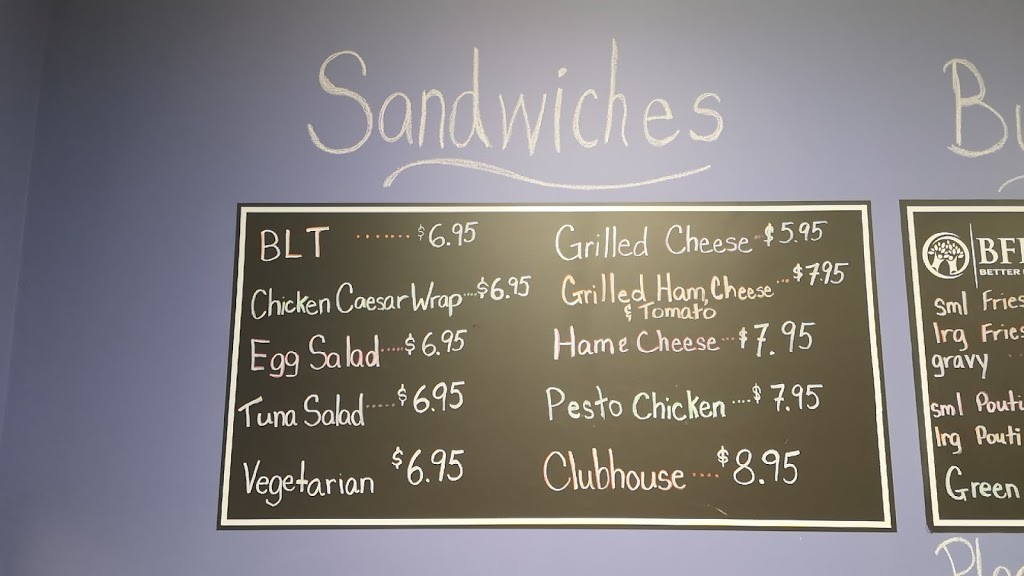 Sandwiches
BLT ....... $6.95
Chicken Caesar Wrap....$6.95
Egg Salad.....$6.95
Tuna Salad.....$6.95
Vegetarian $6.95
Grilled Cheese-$5.95
Grilled Ham, Cheese...$7.95
& Tomato
Ham e Cheese...$7.95
Pesto Chicken....$7.95
Clubhouse....$8.95
BETTER
sml Fries
lrg Fries
gravy
sml
lrg
Green